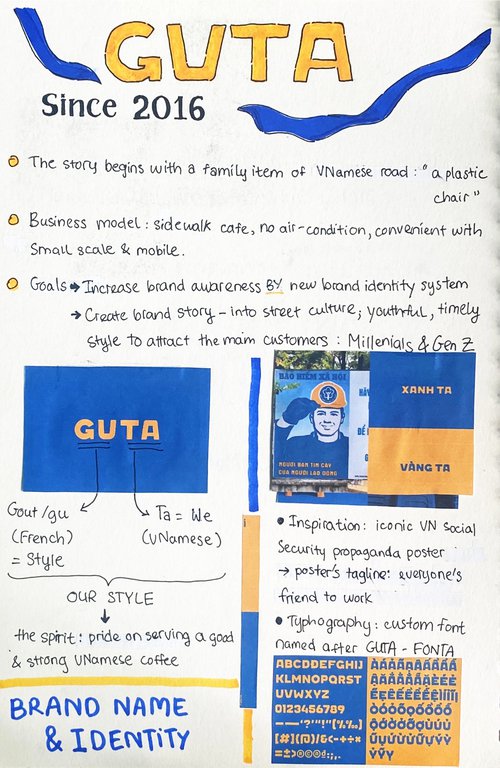 GUTA
Since 2016
The story begins with a family item of VNamese road : "a plastic
chair"
Business model : sidewalk cafe, no air-condition, convenient with
Small scale & mobile.
Goals → Increase brand awareness BY new brand identity system
→ Create brand story - into street culture, youthful, timely
style to attract the main customers : Millenials & Gen Z
GUTA
Gout/gu
(French)
= Style
Ta = We
(VNamese)
OUR STYLE
the spirit : pride on serving a good
& strong VNamese coffee
BRAND NAME
& IDENTITY
BẢO HIỂM XÃ HỘI
NGƯỜI BẠN TIN CẬY
CỦA NGƯỜI LAO ĐỘNG
XANH TA
VÀNG TA
Inspiration: iconic VN social
Security propaganda poster
→ poster's tagline: everyone's
friend to work
Typhography: custom font
named after GUTA - FONTA
ABCDĐEFGHIJ
KLMNOPQRST
UVWXYZ
0123456789